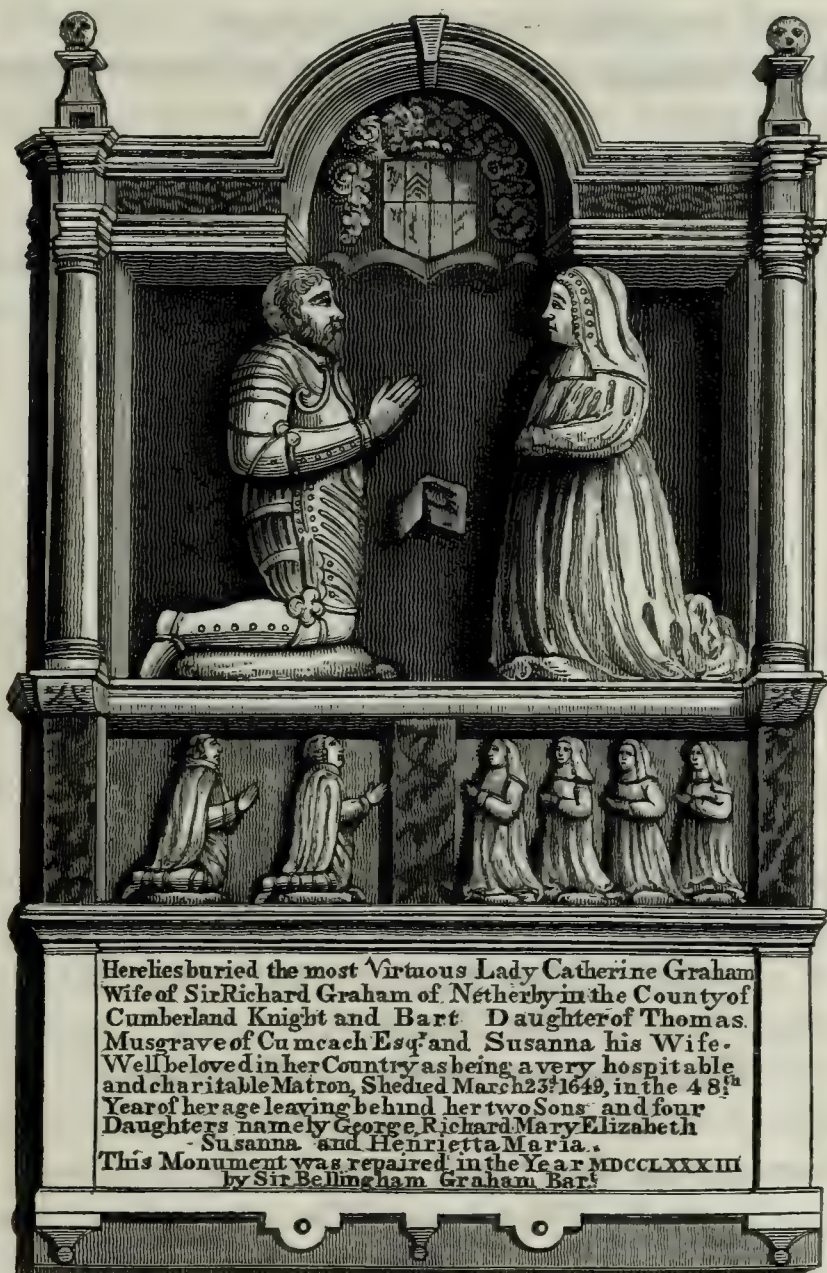 Here lies buried the most Virtuous Lady Catherine Graham
Wife of Sir Richard Graham of Netherby in the County of
Cumberland Knight and Bart Daughter of Thomas.
Musgrave of Cumcach Esqr and Susanna his Wife.
Well beloved in her Country as being a very hospitable
and charitable Matron, She died March 23d. 1649, in the 48th
Year of her age leaving behind her two Sons and four
Daughters namely George, Richard Mary Elizabeth
- Susanna and Henrietta Maria.
This Monument was repaired in the Year MDCCLXXXIII
by Sir Bellingham Graham Bart